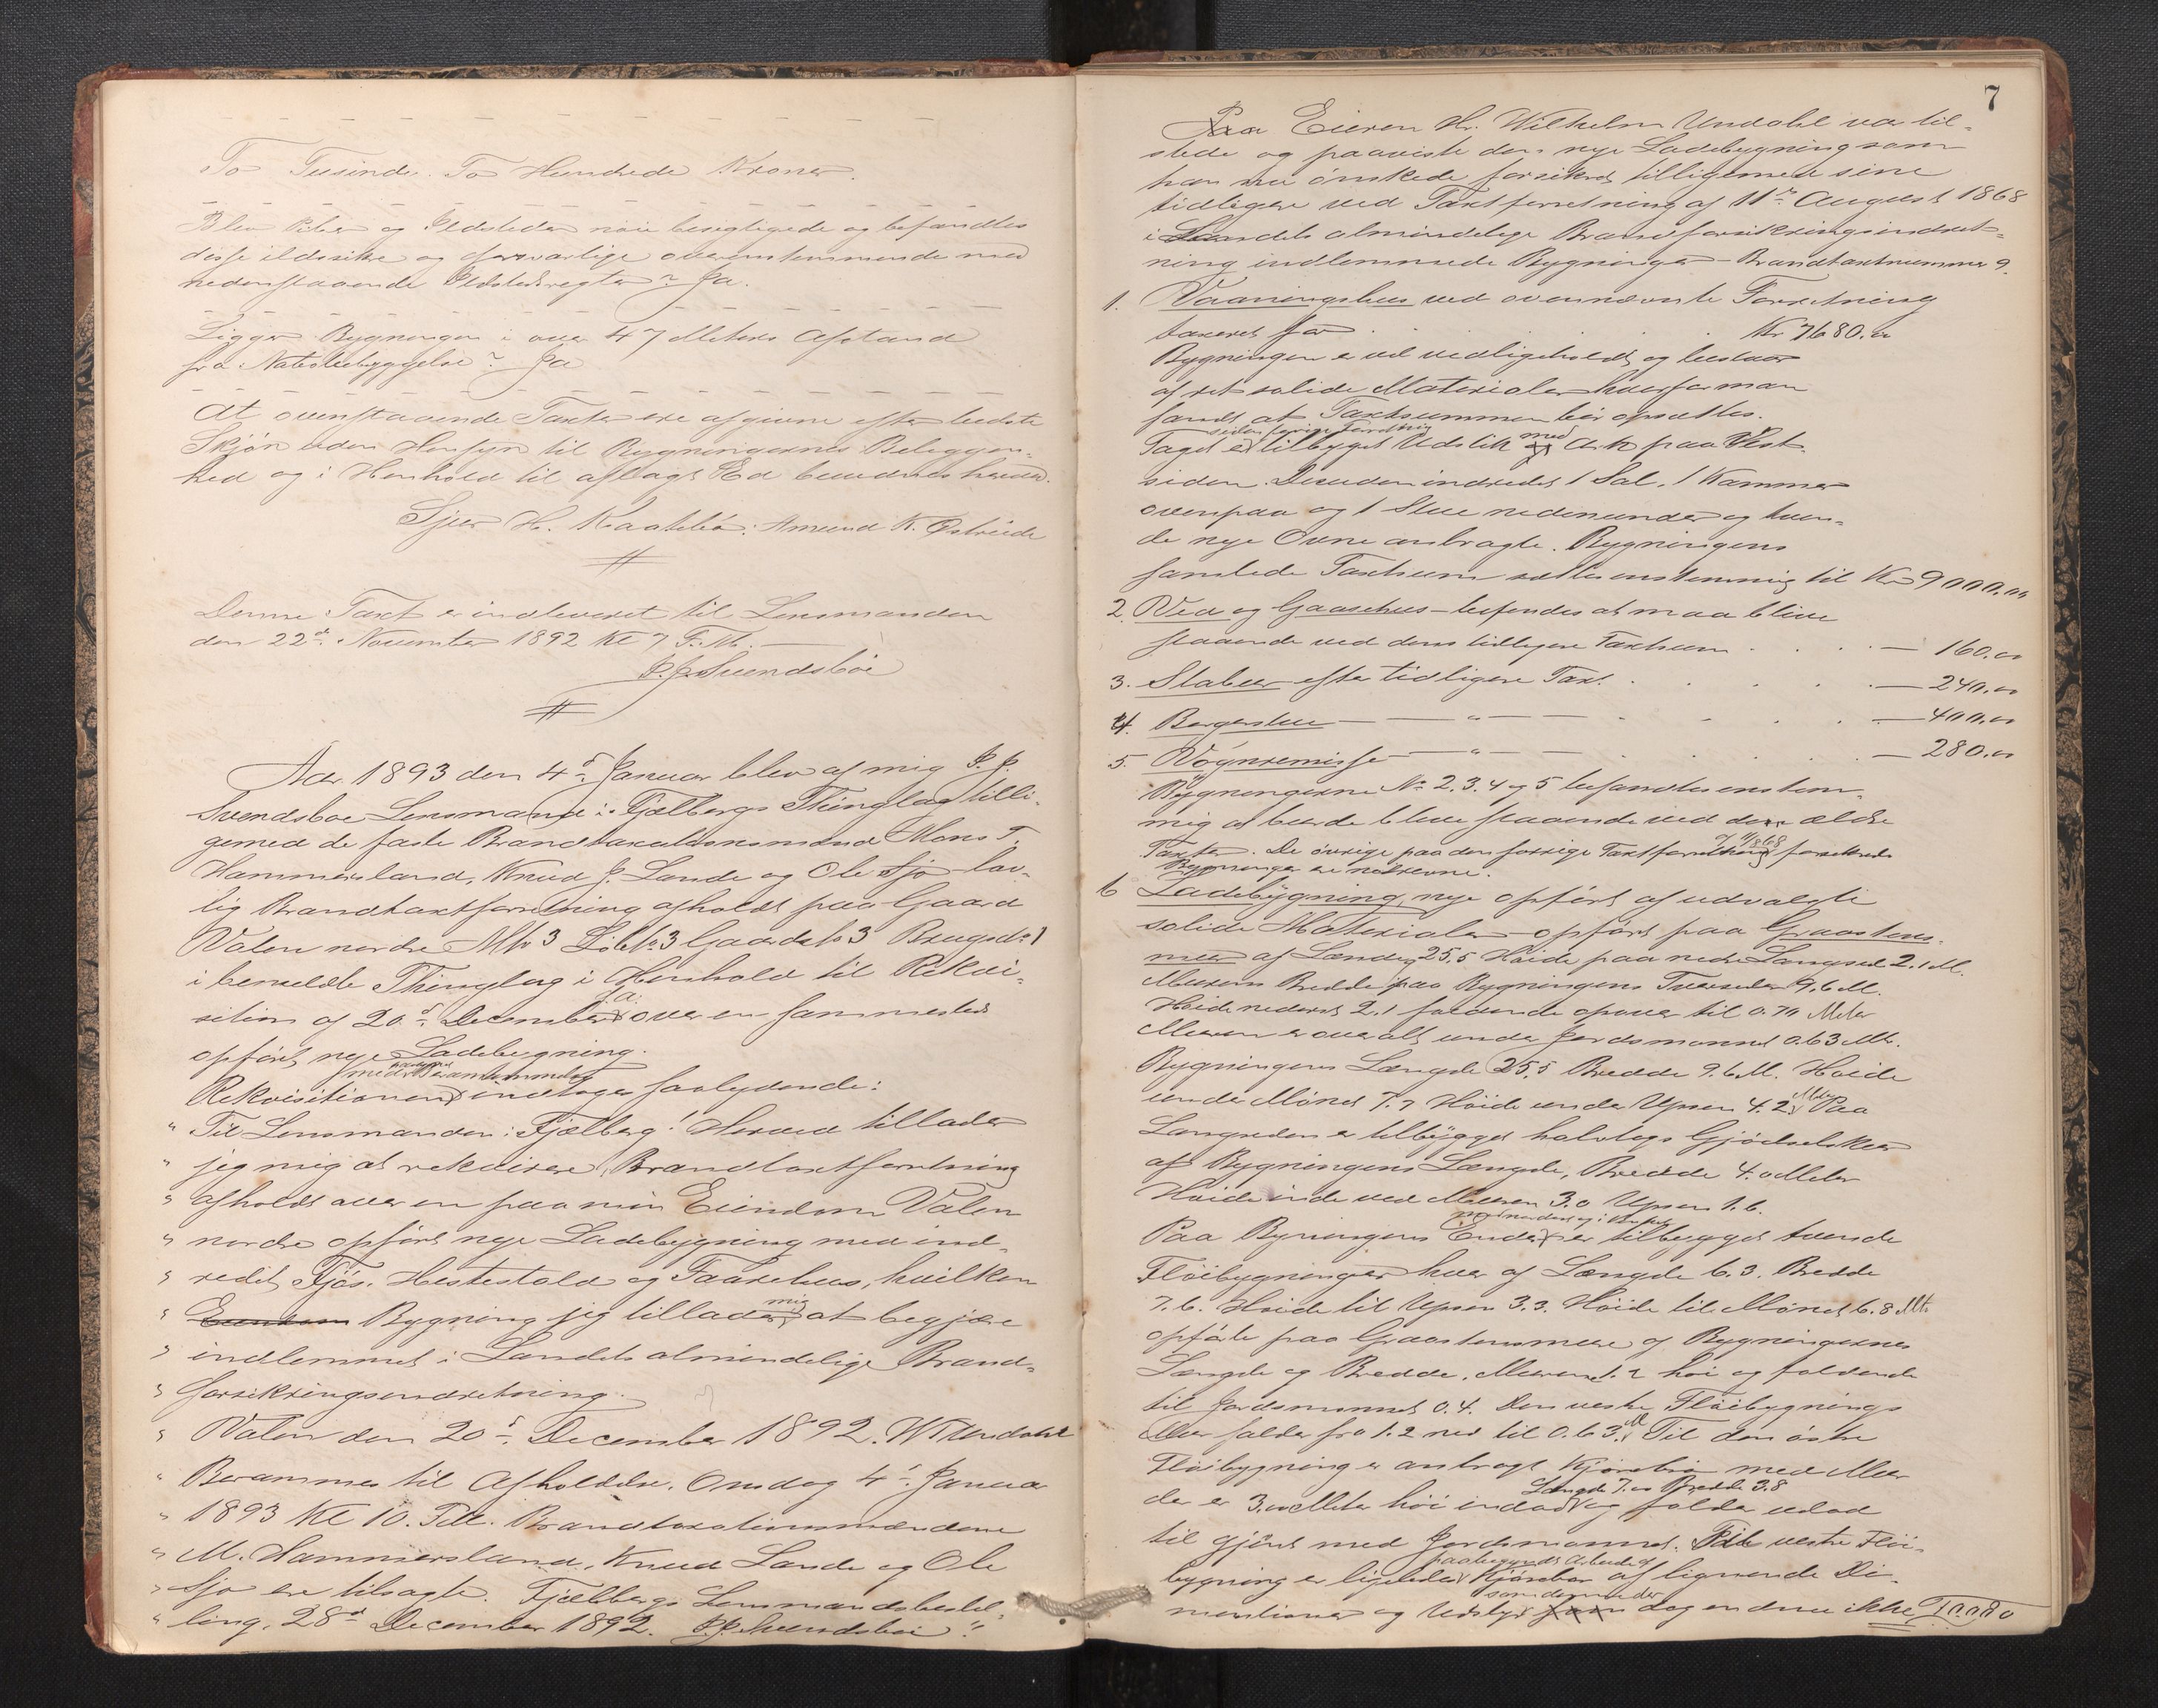 To Tusinde To Hundrede Kroner.
Blev Piber og Ildsteder nöie besigtigede og befandtes
disse ildsikre og forsvarlige overensstemmende med
nedenstaaende Ildstedsregter? Ja.
Ligger Bygningen i over 47 Meters Afstand
fra Nabobebyggelse? Ja
At ovenstaaende Taxter ere afgivne efter bedste
Skjön uden Hensyn til Bygningernes Beliggen-
hed og i Henhold til aflagt Ed bevidnes herved.
Sjur H. Amund K. Östreide
Denne Taxt er indleveret til Lensmanden
den 22de November 1892 Kl 7 F.M.
P.J. Svendsböe
Aar 1893 den 4de Januar blev af mig P. J.
Svendsboe Lensmand i Fjælbergs Thinglag tilli-
gemed de faste Brandtaxationsmænd Mons T.
Hammersland, Knud J. Lande og Ole Sjo lov-
lig Brandtaxtforretning afholdt paa Gaard
Valen nordre Mtr 3 Löbe 3 Gaards No 3 Brugs No 1
i bemeldte Thinglag i Henhold til Rekvi-
sition af 20de December f. a. over en sammesteds
opfört nye Ladebygning.
Rekvisitionen med paategnet Berammelse indtages saalydende:
" Til Lensmanden i Fjælberg! Herved tillader
" jeg mig at rekvirere Brandtaxtforretning
" afholdt over en paa min Eiendom Valen
" nordre opfört nye Ladebygning med ind-
" redet Fjös, Hestestald og Faarehus, hvilken
" Eiendom Bygning jeg tillader mig at begjære
" indlemmet i Landets almindelige Brand-
" forsikringsindretning.
" Valen den 20de December 1892. W Undahl
" Berammes til Afholdelse Onsdag 4de Januar
" 1893 Kl 10. Fm. Brandtaxationsmændene
" M. Hammersland, Knud Lande og Ole
" Sjo ere tilsagte. Fjælbergs Lensmandsbestil-
" ling, 28de December 1892. P.J. Svendsboe."
7
Paa Eieren Hr. Wilhelm Undahl var til-
stede og paaviste den nye Ladebygning som
han nu önskede forsikret tilligemed sine
tidligere ved Taxtforretning af 11te August 1868
i Landets almindelige Brandforsikringsindret-
ning indlemmede Bygninger - Brandtaxtnummer 9.
1. Vaaningshus ved ovennævnte Forretning
taxeret for Kr 7680.00
Bygningen er vel vedligeholdt og bestaar
af ret solide Materialer hvorfor man
fandt at Taxtsummen bör opsættes.
Taget er siden forrige Forretning tilbygget Udstik med Ark paa Vest-
siden. Desuden indredet 1 Sal, 1 Kammer
ovenpaa og 1 Stue nedenunder og tven-
de nye Ovne anbragte. Bygningens
samlede Taxtsum sættes enstemmig til Kr 9000.00
2. Ved og Gaasehus - befandtes at maa blive
staaende ved dens tidligere Taxtsum - 160.00
3. Stabur efter tidligere Taxt - 240.00
4. Borgerstue — " — - 400.00
5. Vognremisse — " — - 280.00
Bygningerne No 2.3.4 og 5 befandtes enstem-
mig at burde blive staaende ved den ældre
Taxter. De övrige paa den forrige Taxtforretning af 11/8 68 forsikrede
Bygninger ere nedrevne.
6 Ladebygning, nye opfört af udvalgte
solide Materialer - opfört paa Graastens-
muur af Længde 25.5 Höide paa nedre Langside 2.1 M.
Murens Bredde paa Bygningens Tversider 9.6 M.
Höide nederst 2.1 faldende opover til 0.70 Meter
Muren er overalt under Jordsmonnet 0.63 Mtr.
Bygningens Længde 25.5 Bredde 9.6 M. Höide
under Mönet 7.7 Höide under Upsen 4.2 Meter Paa
Langsiden er tilbygget halvtags Gjödselskur
af Bygningens Længde, Bredde 4.0 Meter
Höide inde ved Muren 3.0 Upsen 1.6.
Paa Bygningens Ender er tilbygget tvende
Flöibygninger hver af Længde 6.3. Bredde
7.6. Höide til Upsen 3.3. Höide til Mönet 6.8 Mtr
opförte paa Graastensmure af Bygningernes
Længde og Bredde. Muren 1.2 höi og faldende
til Jordsmonnet 0.4. Den vestre Flöibygnings
Mur falder fra 1.2 ned til 0.63 M. Til den östre
Flöibygning er anbragt Kjörebro med Mur
der er 3.0 Meter höi indad Længde 7.0 Bredde 3.8 og falder udad
til gjövnt med Jordsmonnet. Til vestre Flöi-
bygning er ligeledes paabegyndt Arbeide af Kjörebro af lignende Di-
mentioner og Udstyr som dog endnu ikke